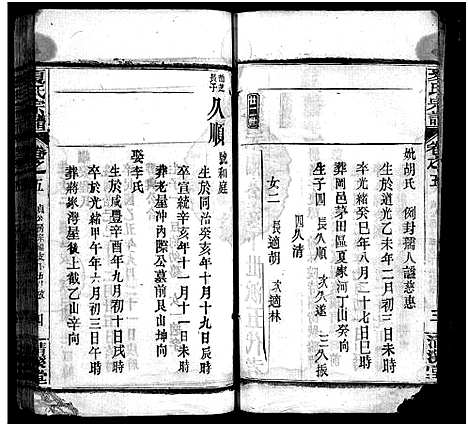 夏氏宗譜
卷之五
三
清溪堂
妣胡氏 例封孺人諡慈惠
生於道光乙未年二月初三日未時
卒光緒癸巳年八月二十七日未時
葬岡邑茅田區夏家河丁山癸向
生子四 長久順 次久遠 三久振
四久清
女二 長適胡 次適林
廿二世
長子 久順 號和庭
生於同治癸亥年十月十九日辰時
卒宣統辛亥年十一月十一日未時
葬老屋沖內際公墓前艮山坤向
娶李氏
生於咸豐辛酉年九月初十日戌時
卒於光緒甲午年六月初三日午時
葬蔣家灣屋後上截乙山辛向
夏氏宗譜
卷之五
四
清溪堂